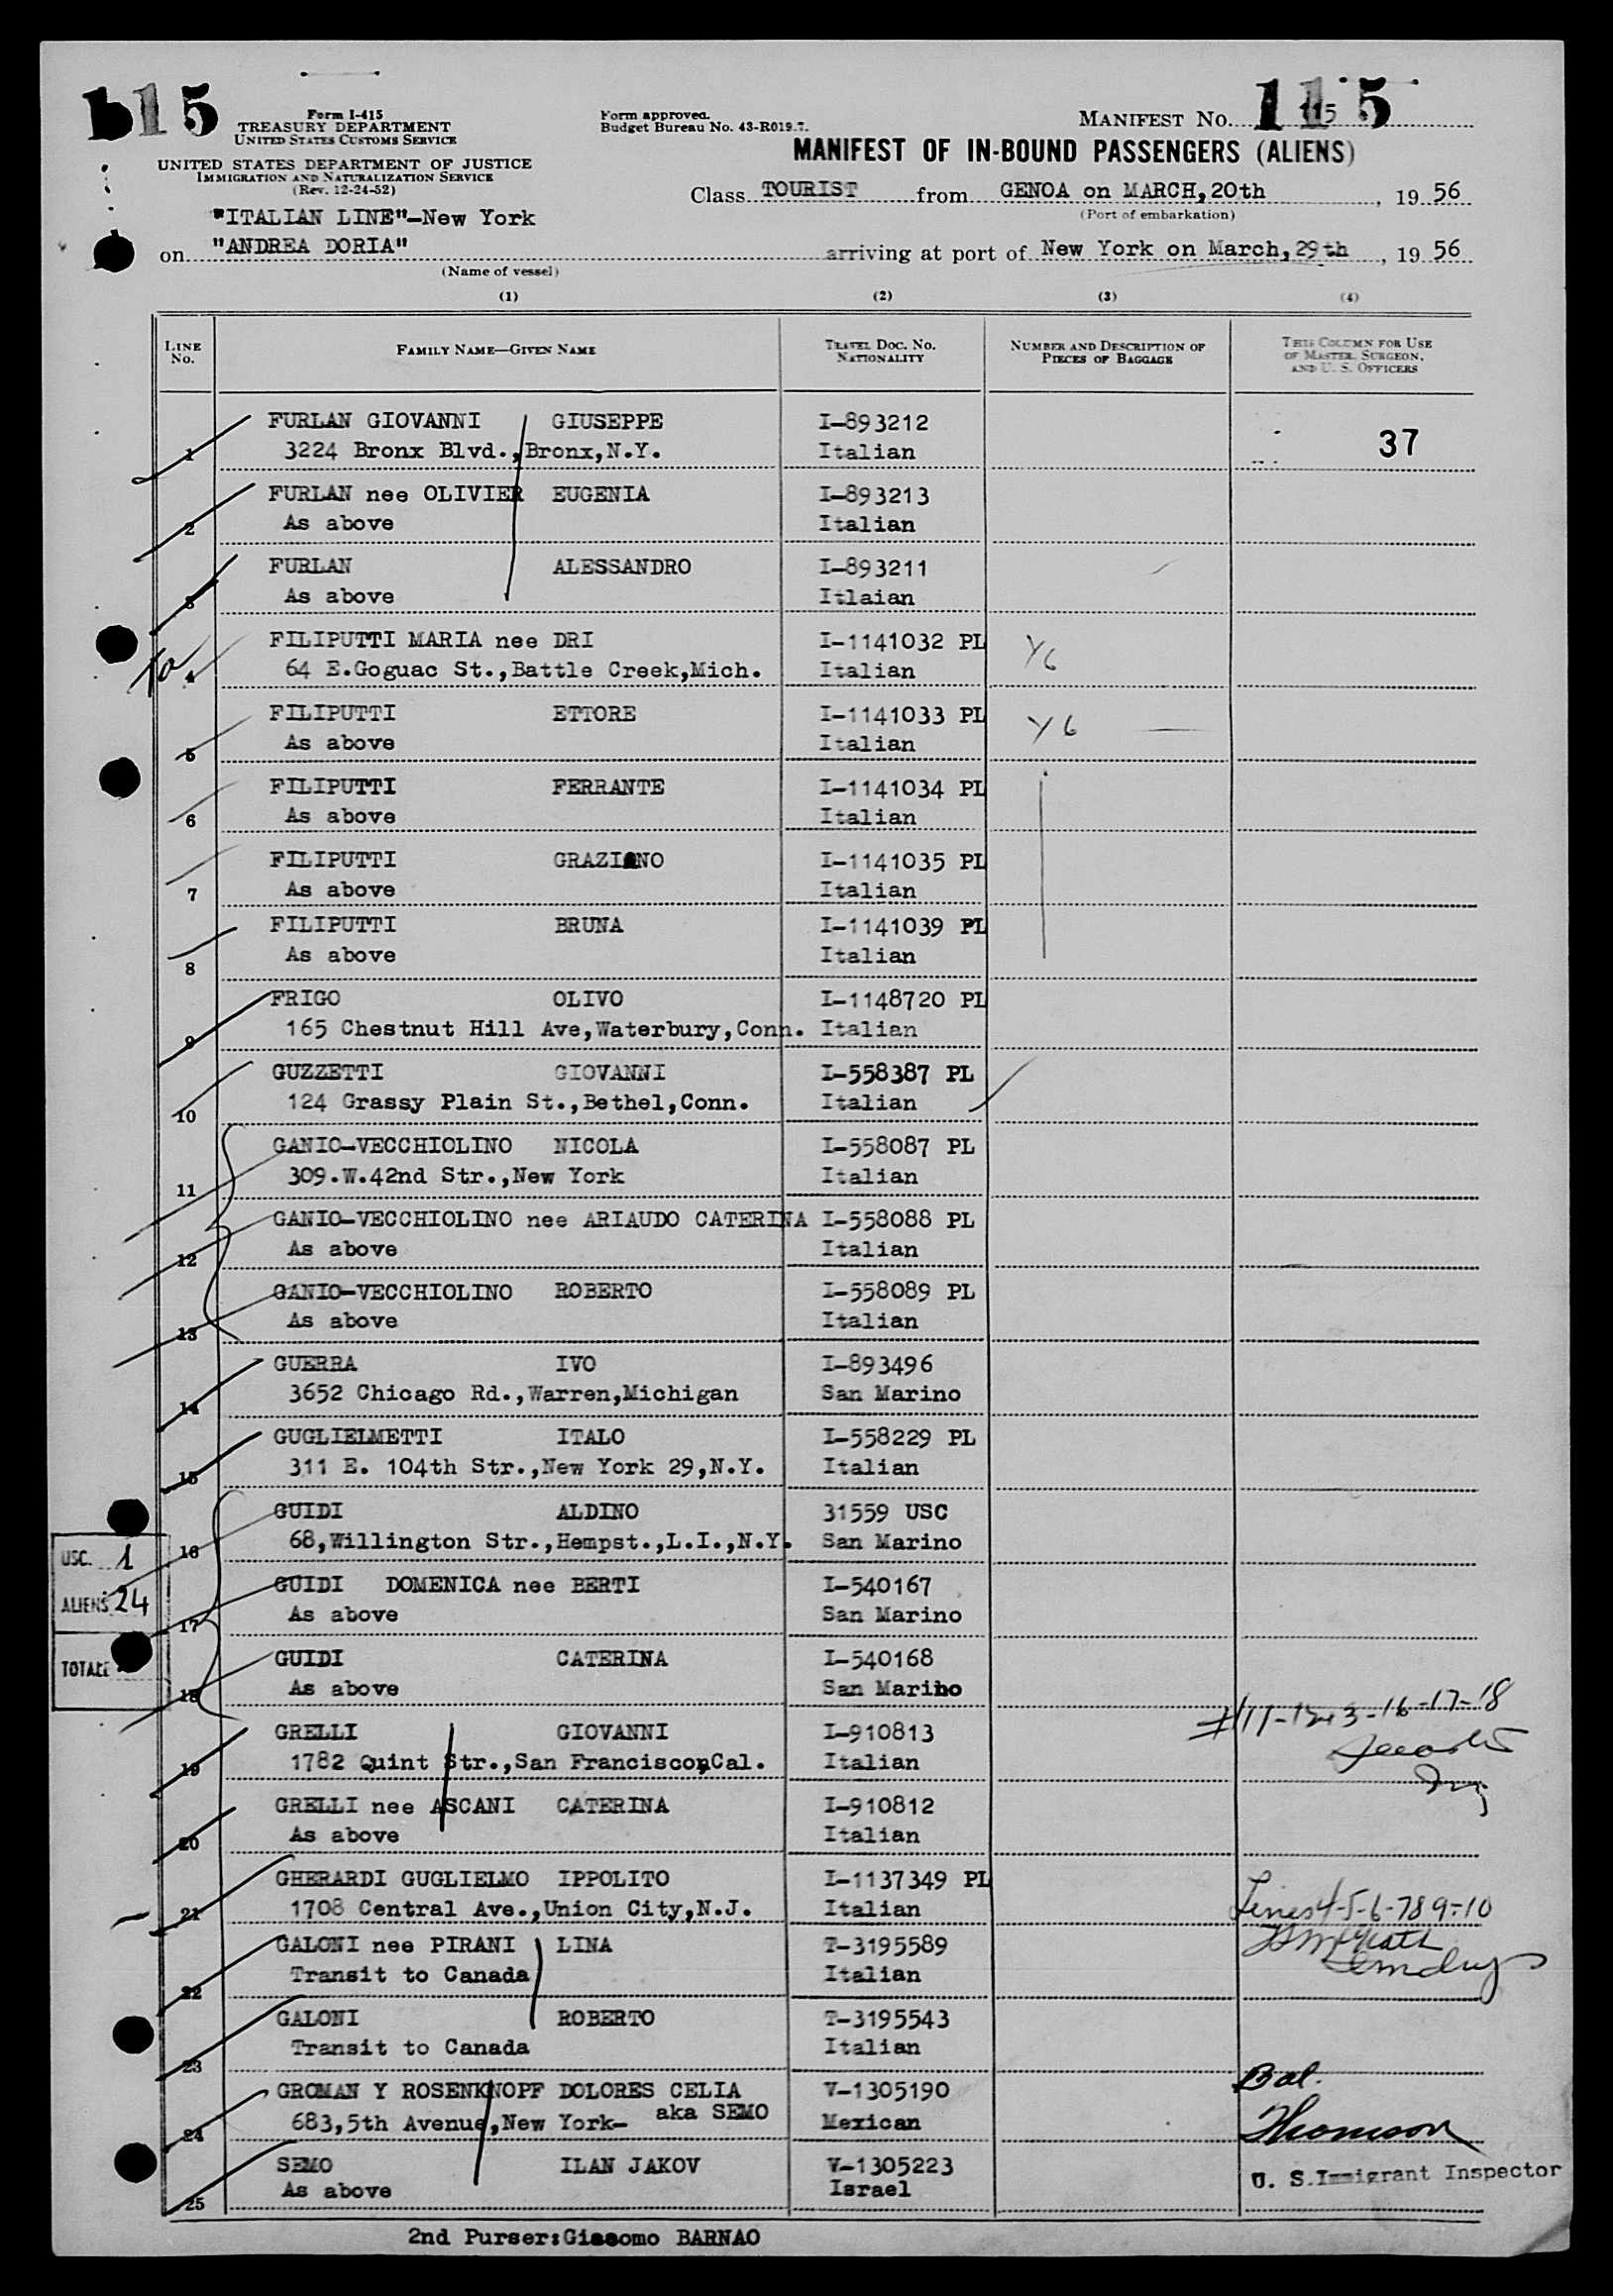 b15
Form I-415
TREASURY DEPARTMENT
UNITED STATES CUSTOMS SERVICE
UNITED STATES DEPARTMENT OF JUSTICE
IMMIGRATION AND NATURALIZATION SERVICE
(Rev. 12-24-52)
Form approved.
Budget Bureau No. 43-R019.7.
MANIFEST No. 115
MANIFEST OF IN-BOUND PASSENGERS (ALIENS)
Class TOURIST from GENOA on MARCH,20th, 19 56
(Port of embarkation)
"ITALIAN LINE"-New York
on "ANDREA DORIA" arriving at port of New York on March,29th, 19 56
(Name of vessel)
(1) (2) (3) (4)
LINE No. FAMILY NAME—GIVEN NAME TRAVEL DOC. NO. NATIONALITY NUMBER AND DESCRIPTION OF PIECES OF BAGGAGE THIS COLUMN FOR USE OF MASTER, SURGEON, AND U. S. OFFICERS
FURLAN GIOVANNI GIUSEPPE I-893212
1 3224 Bronx Blvd.,Bronx,N.Y. Italian 37
FURLAN nee OLIVIER EUGENIA I-893213
2 As above Italian
FURLAN ALESSANDRO I-893211
3 As above Itlaian
FILIPUTTI MARIA nee DRI I-1141032 PL Y6
4 64 E.Goguac St.,Battle Creek,Mich. Italian
FILIPUTTI ETTORE I-1141033 PL Y6
5 As above Italian
FILIPUTTI FERRANTE I-1141034 PL
6 As above Italian
FILIPUTTI GRAZIANO I-1141035 PL
7 As above Italian
FILIPUTTI BRUNA I-1141039 PL
8 As above Italian
FRIGO OLIVO I-1148720 PL
9 165 Chestnut Hill Ave,Waterbury,Conn. Italian
GUZZETTI GIOVANNI I-558387 PL
10 124 Grassy Plain St.,Bethel,Conn. Italian
GANIO-VECCHIOLINO NICOLA I-558087 PL
11 309.W.42nd Str.,New York Italian
GANIO-VECCHIOLINO nee ARIAUDO CATERINA I-558088 PL
12 As above Italian
GANIO-VECCHIOLINO ROBERTO I-558089 PL
13 As above Italian
GUERRA IVO I-893496
14 3652 Chicago Rd.,Warren,Michigan San Marino
GUGLIELMETTI ITALO I-558229 PL
15 311 E. 104th Str.,New York 29,N.Y. Italian
GUIDI ALDINO 31559 USC
16 68,Willington Str.,Hempst.,L.I.,N.Y. San Marino
USC. 1
GUIDI DOMENICA nee BERTI I-540167
ALIENS 24
17 As above San Marino
TOTALE
GUIDI CATERINA I-540168
18 As above San Marino
#11-12-13-16-17-18
GRELLI GIOVANNI I-910813
19 1782 Quint Str.,San Francisco,Cal. Italian
GRELLI nee ASCANI CATERINA I-910812
20 As above Italian
GHERARDI GUGLIELMO IPPOLITO I-1137349 PL
21 1708 Central Ave.,Union City,N.J. Italian
Lines 4-5-6-7 8 9-10
GALONI nee PIRANI LINA T-3195589
22 Transit to Canada Italian
GALONI ROBERTO T-3195543
23 Transit to Canada Italian
Bal.
GROMAN Y ROSENKNOPF DOLORES CELIA V-1305190
aka SEMO
24 683,5th Avenue,New York- Mexican
Thomson
SEMO ILAN JAKOV V-1305223
U. S.Immigrant Inspector
25 As above Israel
2nd Purser:Giacomo BARNAO